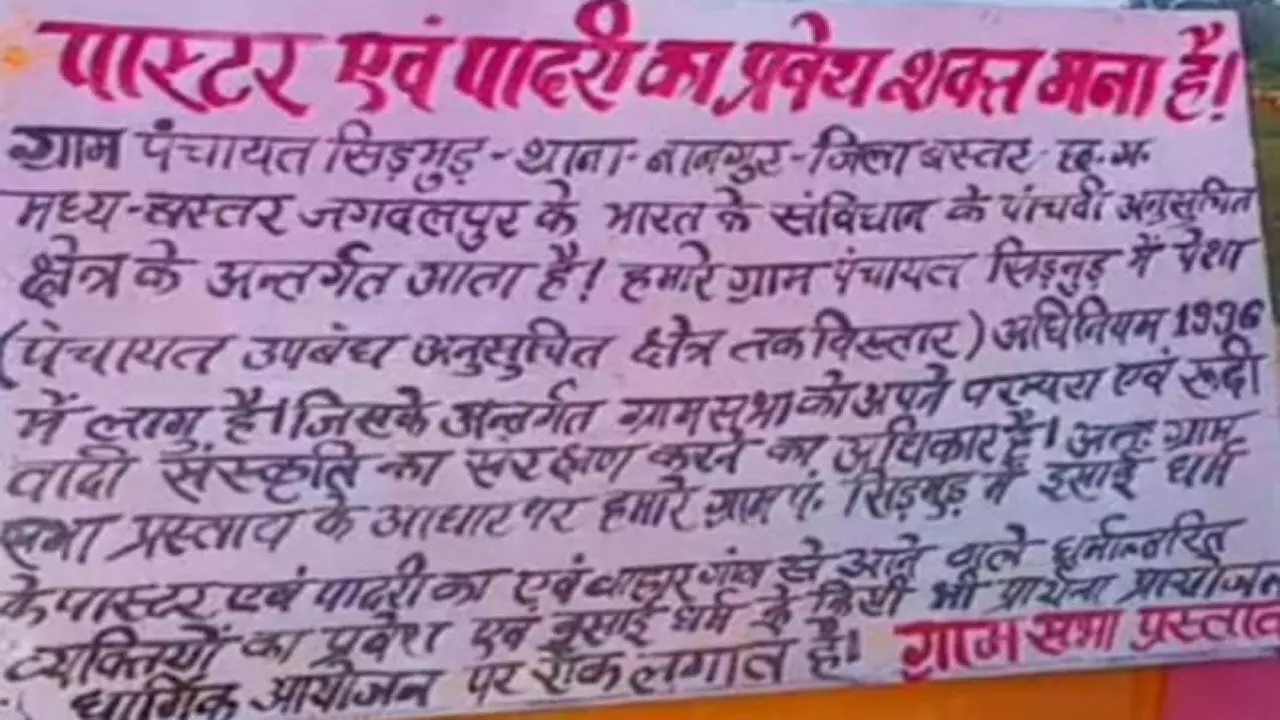 पास्टर एवं पादरी का प्रवेश शक्त मना है!
ग्राम पंचायत सिड़मुड़-थाना-नानगुर-जिला बस्तर छ.ग.
मध्य-बस्तर जगदलपुर के भारत के संविधान के पांचवी अनुसुचित
क्षेत्र के अन्तर्गत आता है! हमारे ग्राम पंचायत सिड़मुड़ में पेशा
(पंचायत उपबंध अनुसुचित क्षेत्र तक विस्तार) अधिनियम 1996
में लागु है। जिसके अन्तर्गत ग्राम सभा को अपने परम्परा एवं रूढी
वादी संस्कृति का संरक्षण करने का अधिकार है। अतः ग्राम
सभा प्रस्ताव के आधार पर हमारे ग्राम पं. सिड़मुड़ में इसाई धर्म
के पास्टर एवं पादरी का एवं बाहर गांव से आने वाले धर्मान्तरित
व्यक्तियों का प्रवेश एवं इसाई धर्म के किसी भी प्रार्थना प्रायोजन
धार्मिक आयोजन पर रोक लगाते है। ग्राम सभा प्रस्ताव